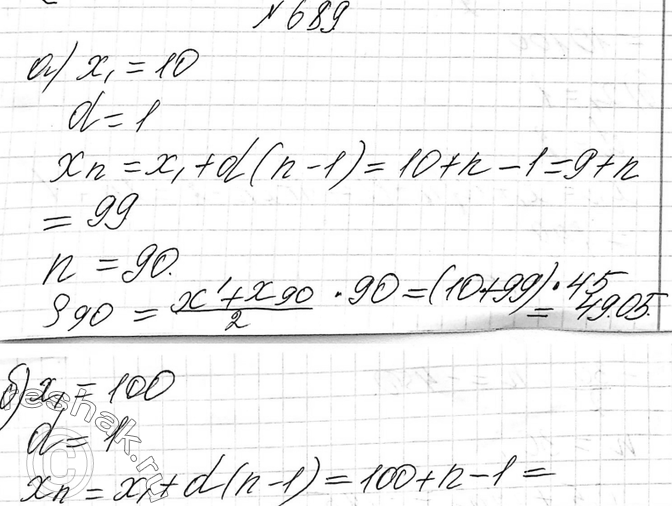 №689
а) x₁ = 10
d = 1
xn = x₁ + d(n-1) = 10+n-1 = 9+n
= 99
n = 90.
S90 = (x₁+x90)/2 · 90 = (10+99) · 45
= 4905.
б) x₁ = 100
d = 1
xn = x₁ + d(n-1) = 100+n-1 =
reshak.ru